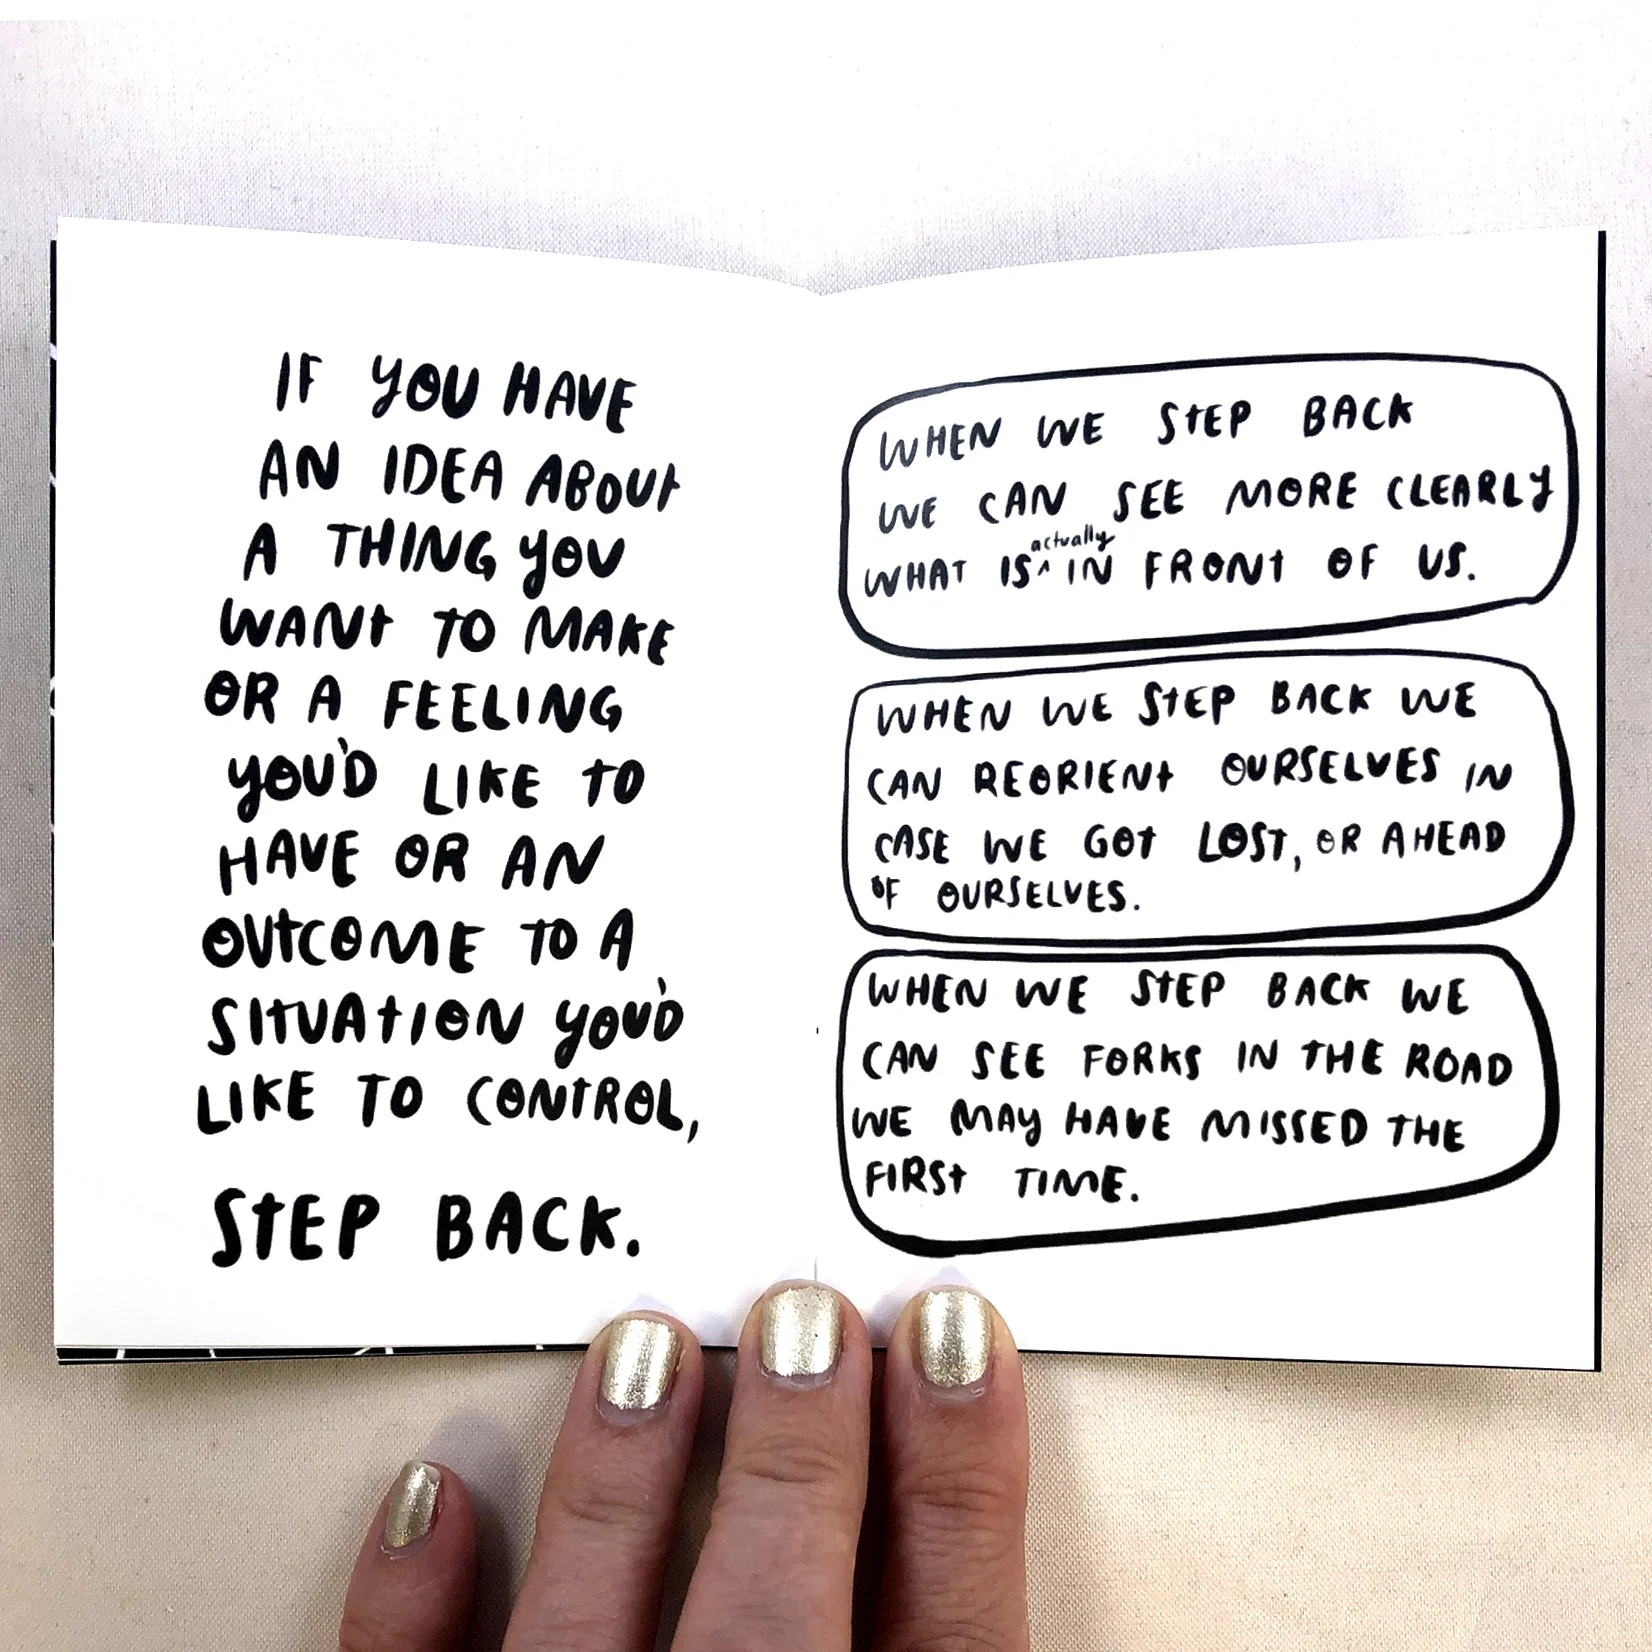 IF YOU HAVE
AN IDEA ABOUT
A THING YOU
WANT TO MAKE
OR A FEELING
YOU'D LIKE TO
HAVE OR AN
OUTCOME TO A
SITUATION YOU'D
LIKE TO CONTROL,
STEP BACK.
WHEN WE STEP BACK
WE CAN SEE MORE CLEARLY
WHAT IS actually IN FRONT OF US.
WHEN WE STEP BACK WE
CAN REORIENT OURSELVES IN
CASE WE GOT LOST, OR AHEAD
OF OURSELVES.
WHEN WE STEP BACK WE
CAN SEE FORKS IN THE ROAD
WE MAY HAVE MISSED THE
FIRST TIME.